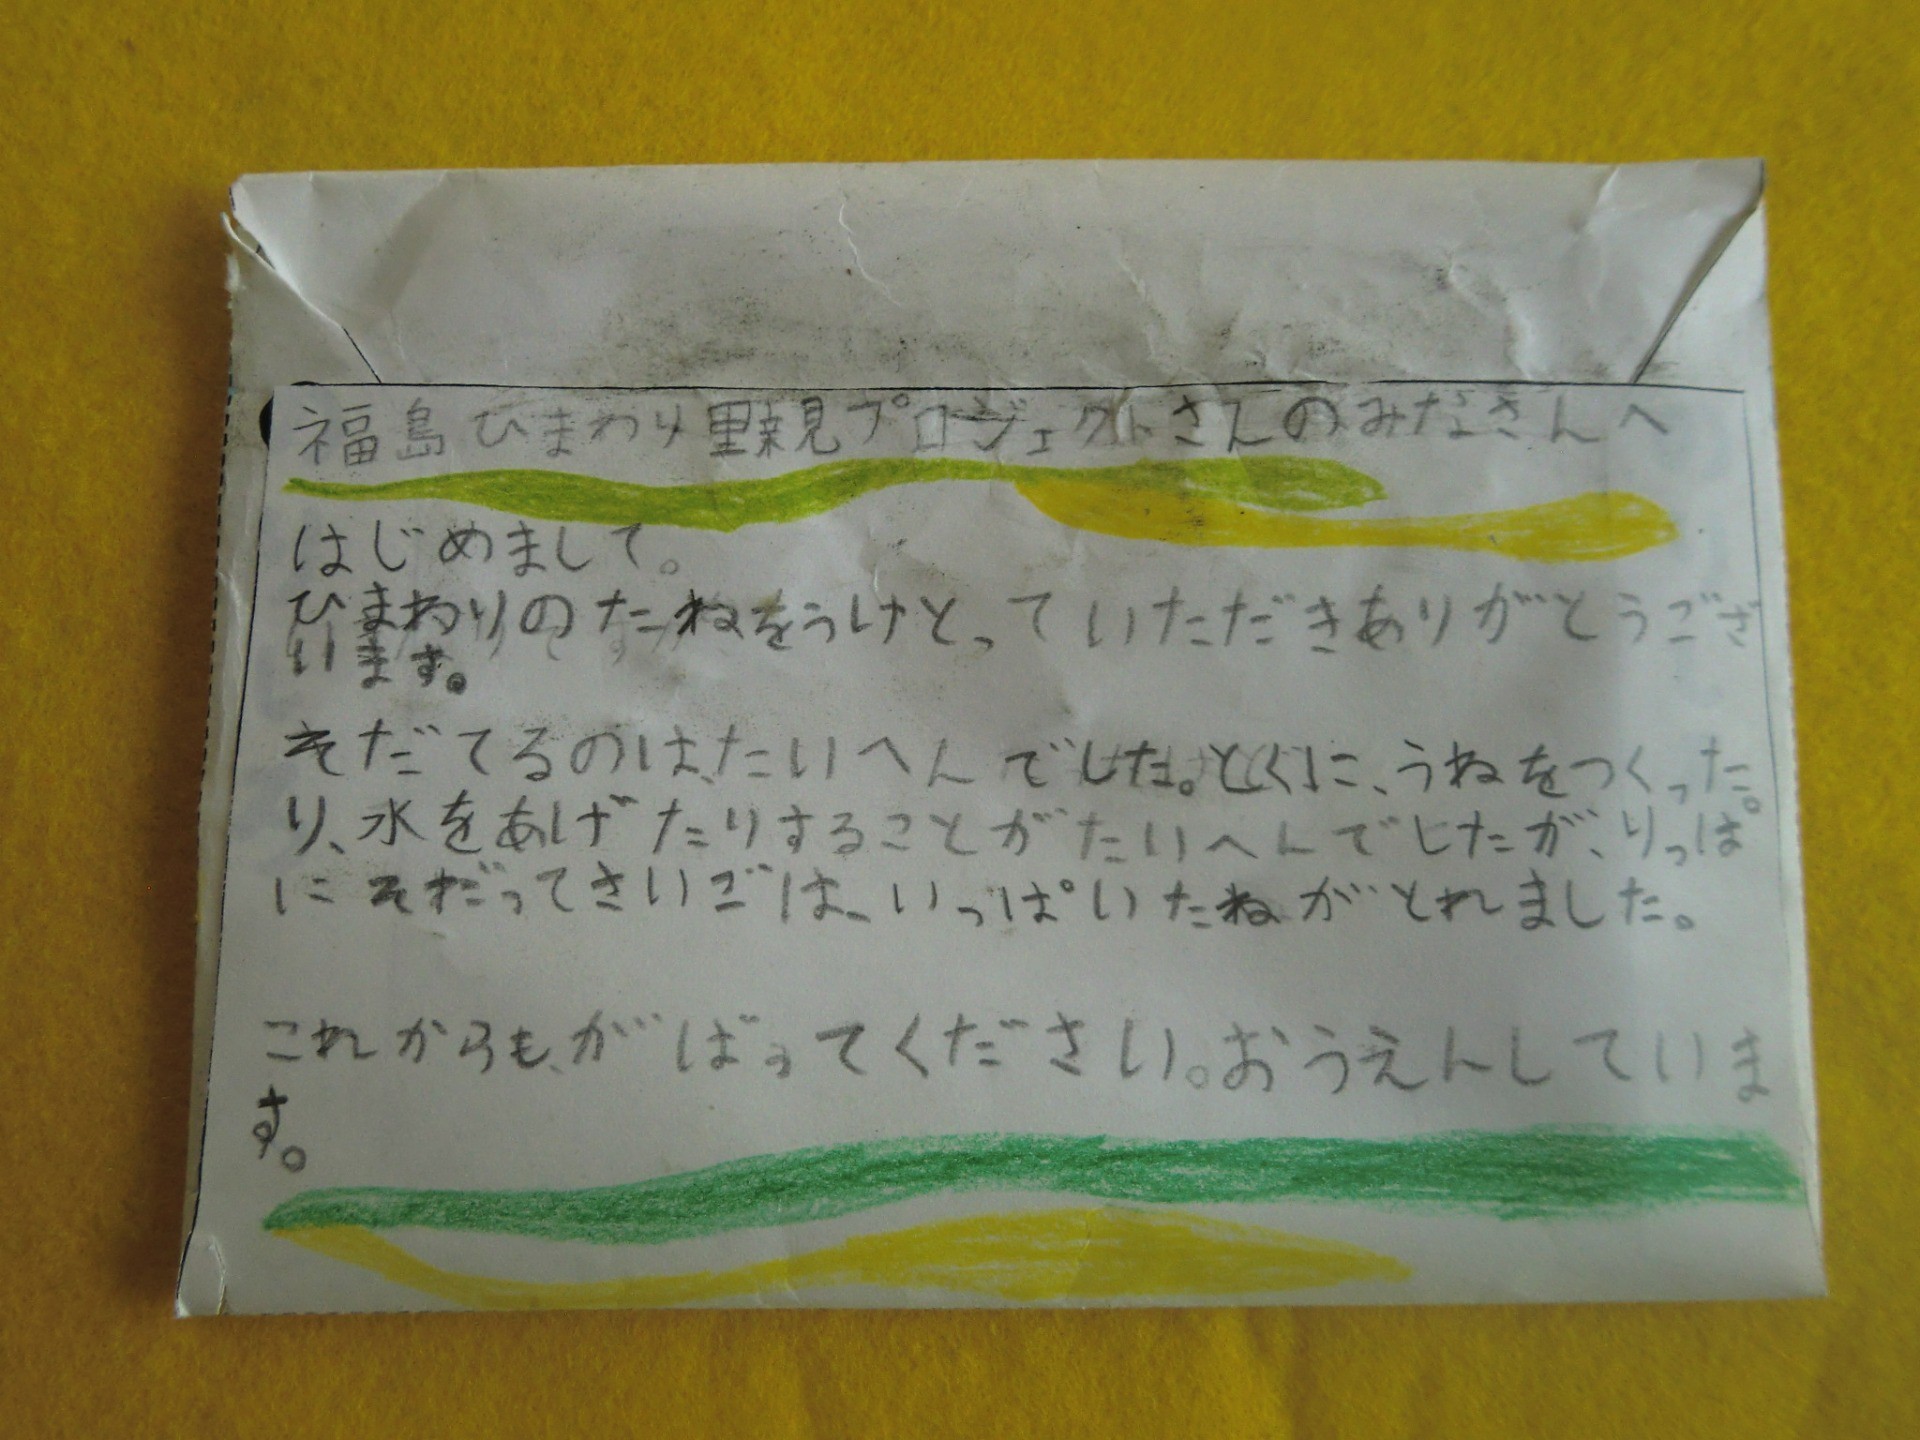 福島ひまわり里親プロジェクトさんのみなさんへ
はじめまして。
ひまわりのたねをうけとっていただきありがとうござ
います。
そだてるのは、たいへんでした。とくに、うねをつくった。
り、水をあげたりすることがたいへんでしたが、りっぱ
にそだってさいごは、いっぱいたねがとれました。
これからも、がばってください。おうえんしていま
す。